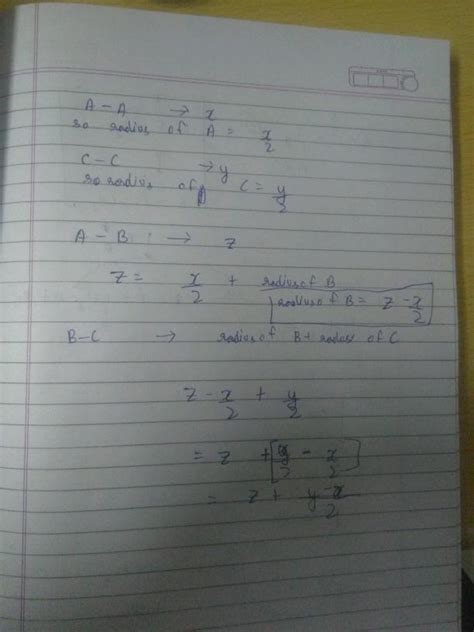 A – A → x
so radius of A = x/2
C – C → y
so radius of C = y/2
A – B → z
z = x/2 + radius of B
radius of B = z - x/2
B – C → radius of B + radius of C
z - x/2 + y/2
= z + [y/2 - x/2]
= z + y-x/2